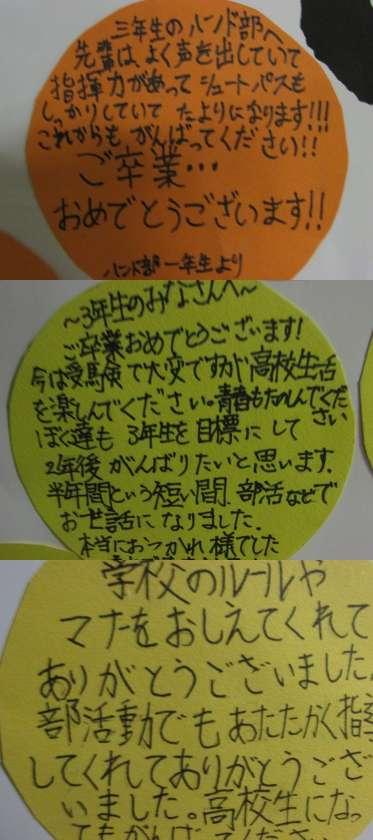 三年生のハンド部へ
先輩は、よく声を出していて
指揮力があって シュートパスも
しっかりしていて たよりになります!!!
これからも がんばってください!!
ご卒業…
おめでとうございます!!
ハンド部一年生より
〜3年生のみなさんへ〜
ご卒業おめでとうございます!
今は受験で大変ですが高校生活
を楽しんでください。青春もたのしんでくだ
さい
ぼく達も 3年生を目標に して
2年後 がんばりたいと思います.
半年間という短い間, 部活などで
お世話に なりました.
本当におつかれ様でした
学校のルールや
マナーをおしえてくれて
ありがとうございました。
部活動でもあたたかく指導
してくれてありがとうござ
いました。高校生になっ
てもがんばってくださ